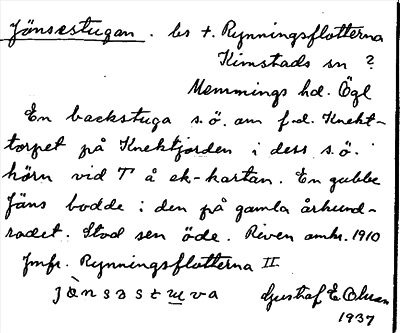 Jönsestugan. bs t. Rynningsflotterna
Kimstads sn ?
Memmings hd. Ögl
En backstuga s.ö. om f.d. Knekt-
torpet på Knektjorden i dess s.ö.
hörn vid T å ek-kartan. En gubbe
Jäns bodde i den på gamla århund-
radet. Stod sen öde. Riven omkr. 1910
Jmfr. Rynningsflotterna II
Gustaf E. Olsson
1937